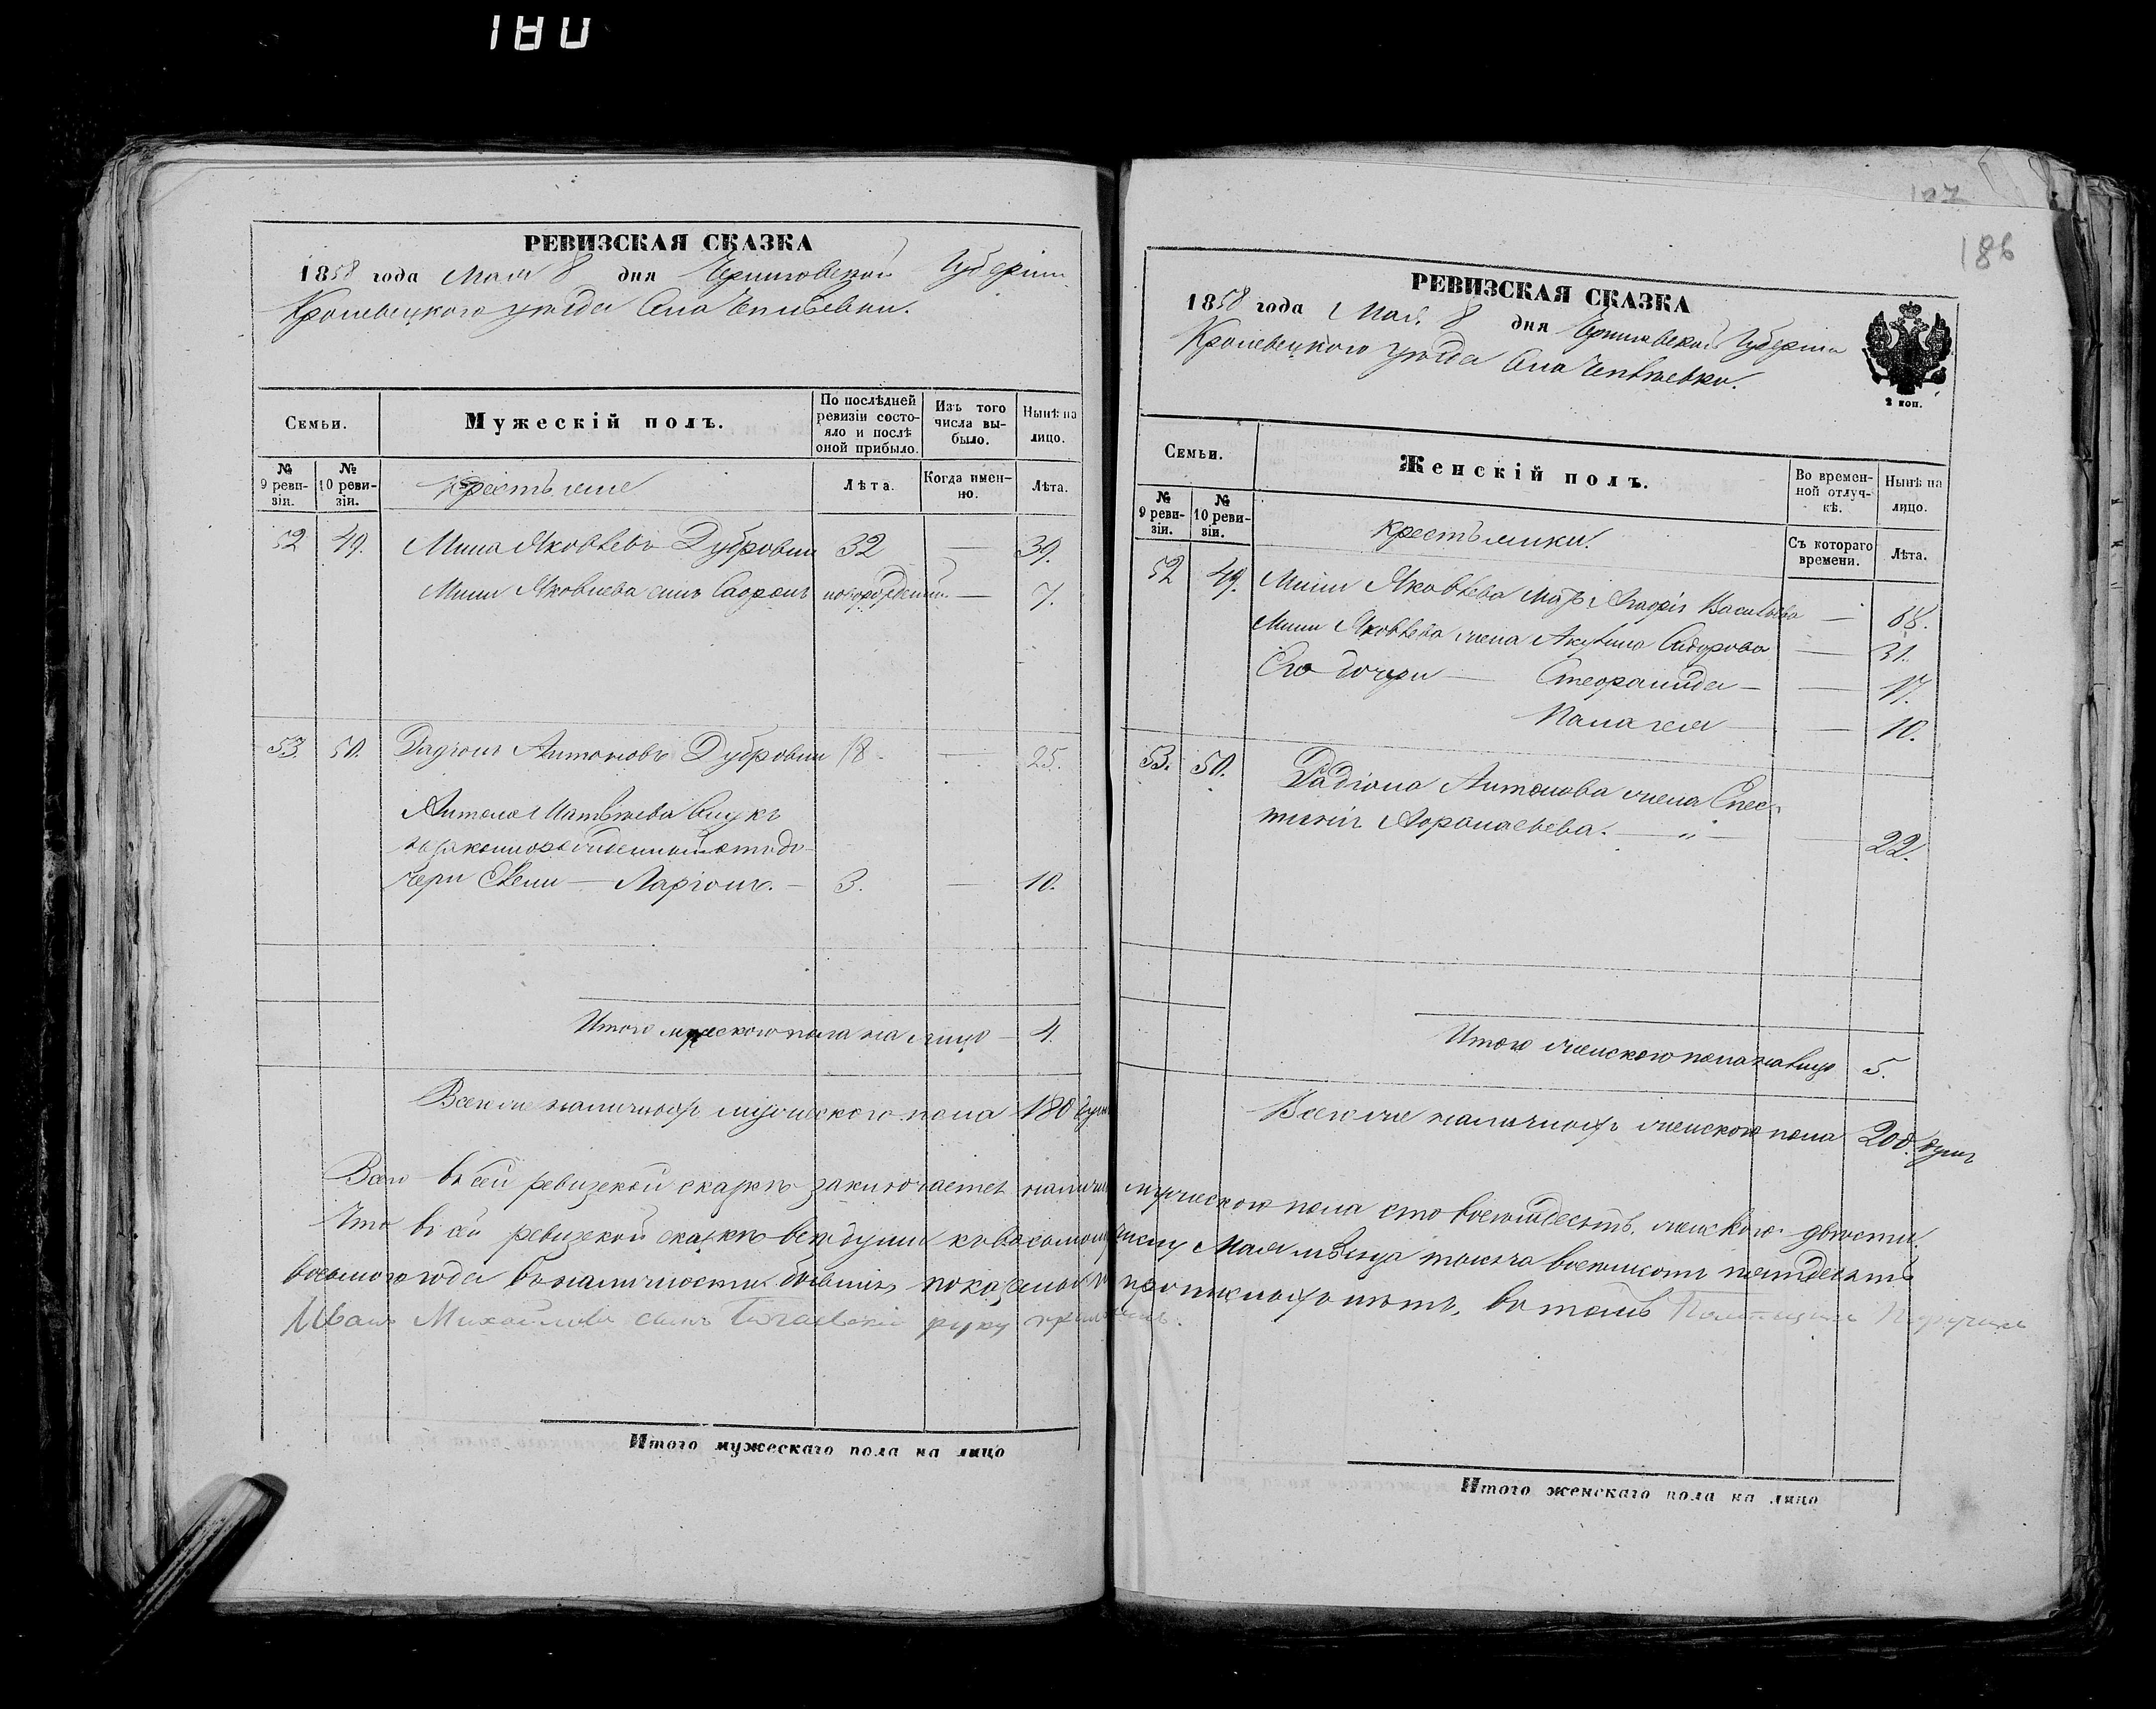 180
РЕВИЗСКАЯ СКАЗКА
1858 года Мая 8 дня Черниговской Губернии
Кролевецкого уезда Села
Семьи.
Мужескій полъ.
По послѣдней ревизіи состояло и послѣ оной прибыло.
Изъ того числа выбыло.
Нынѣ на лицо.
№ 9 ревизіи.
№ 10 ревизіи.
Крестьяне
Лѣта.
Когда именно.
Лѣта.
52 49. Мина Яковлевъ Дубровин 32 — 39.
Мины Яковлева сынъ новорожденный — 7.
53. 50. Антоновъ Дубровин 18 — 25.
Антона Матвѣева внукъ
незаконнорожденный отъ до-
чери — Ларіонъ. — 3. — 10.
Итого мужеского пола на лицо — 4.
Всего же наличныхъ мужеского пола 180 душъ
107
186
РЕВИЗСКАЯ СКАЗКА
1858 года Мая 8 дня Черниговской Губерніи
Кролевецкого уѣзда Села
2 коп.
Семьи.
Женскій полъ.
Во временной отлучкѣ.
Нынѣ на лицо.
№ 9 ревизіи.
№ 10 ревизіи.
Крестьянки.
Съ котораго времени.
Лѣта.
52 49. Мины Яковлева мать Васильева — 68.
Мины Яковлева жена Акулина Сидорова — 31.
Его дочери — Степанида — — 17.
Палагея — — 10.
53. 50. Радіона Антонова жена
— „ — — 22.
Итого женского пола на лицо 5.
Всего же наличныхъ женского пола 200. душъ
Всего въ сей ревизской сказкѣ заключается мужеского пола сто восемьдесятъ, женского двѣсти.
Что въ сей ревизской сказкѣ всѣ души числу Мая мѣсяца тысяча восемьсотъ пятьдесятъ
восьмого года въ наличности бывшія показаны и прописныхъ нѣтъ, въ томъ
Иванъ Михайловъ сынъ руку приложилъ.
Итого мужескаго пола на лицо
Итого женскаго пола на лицо